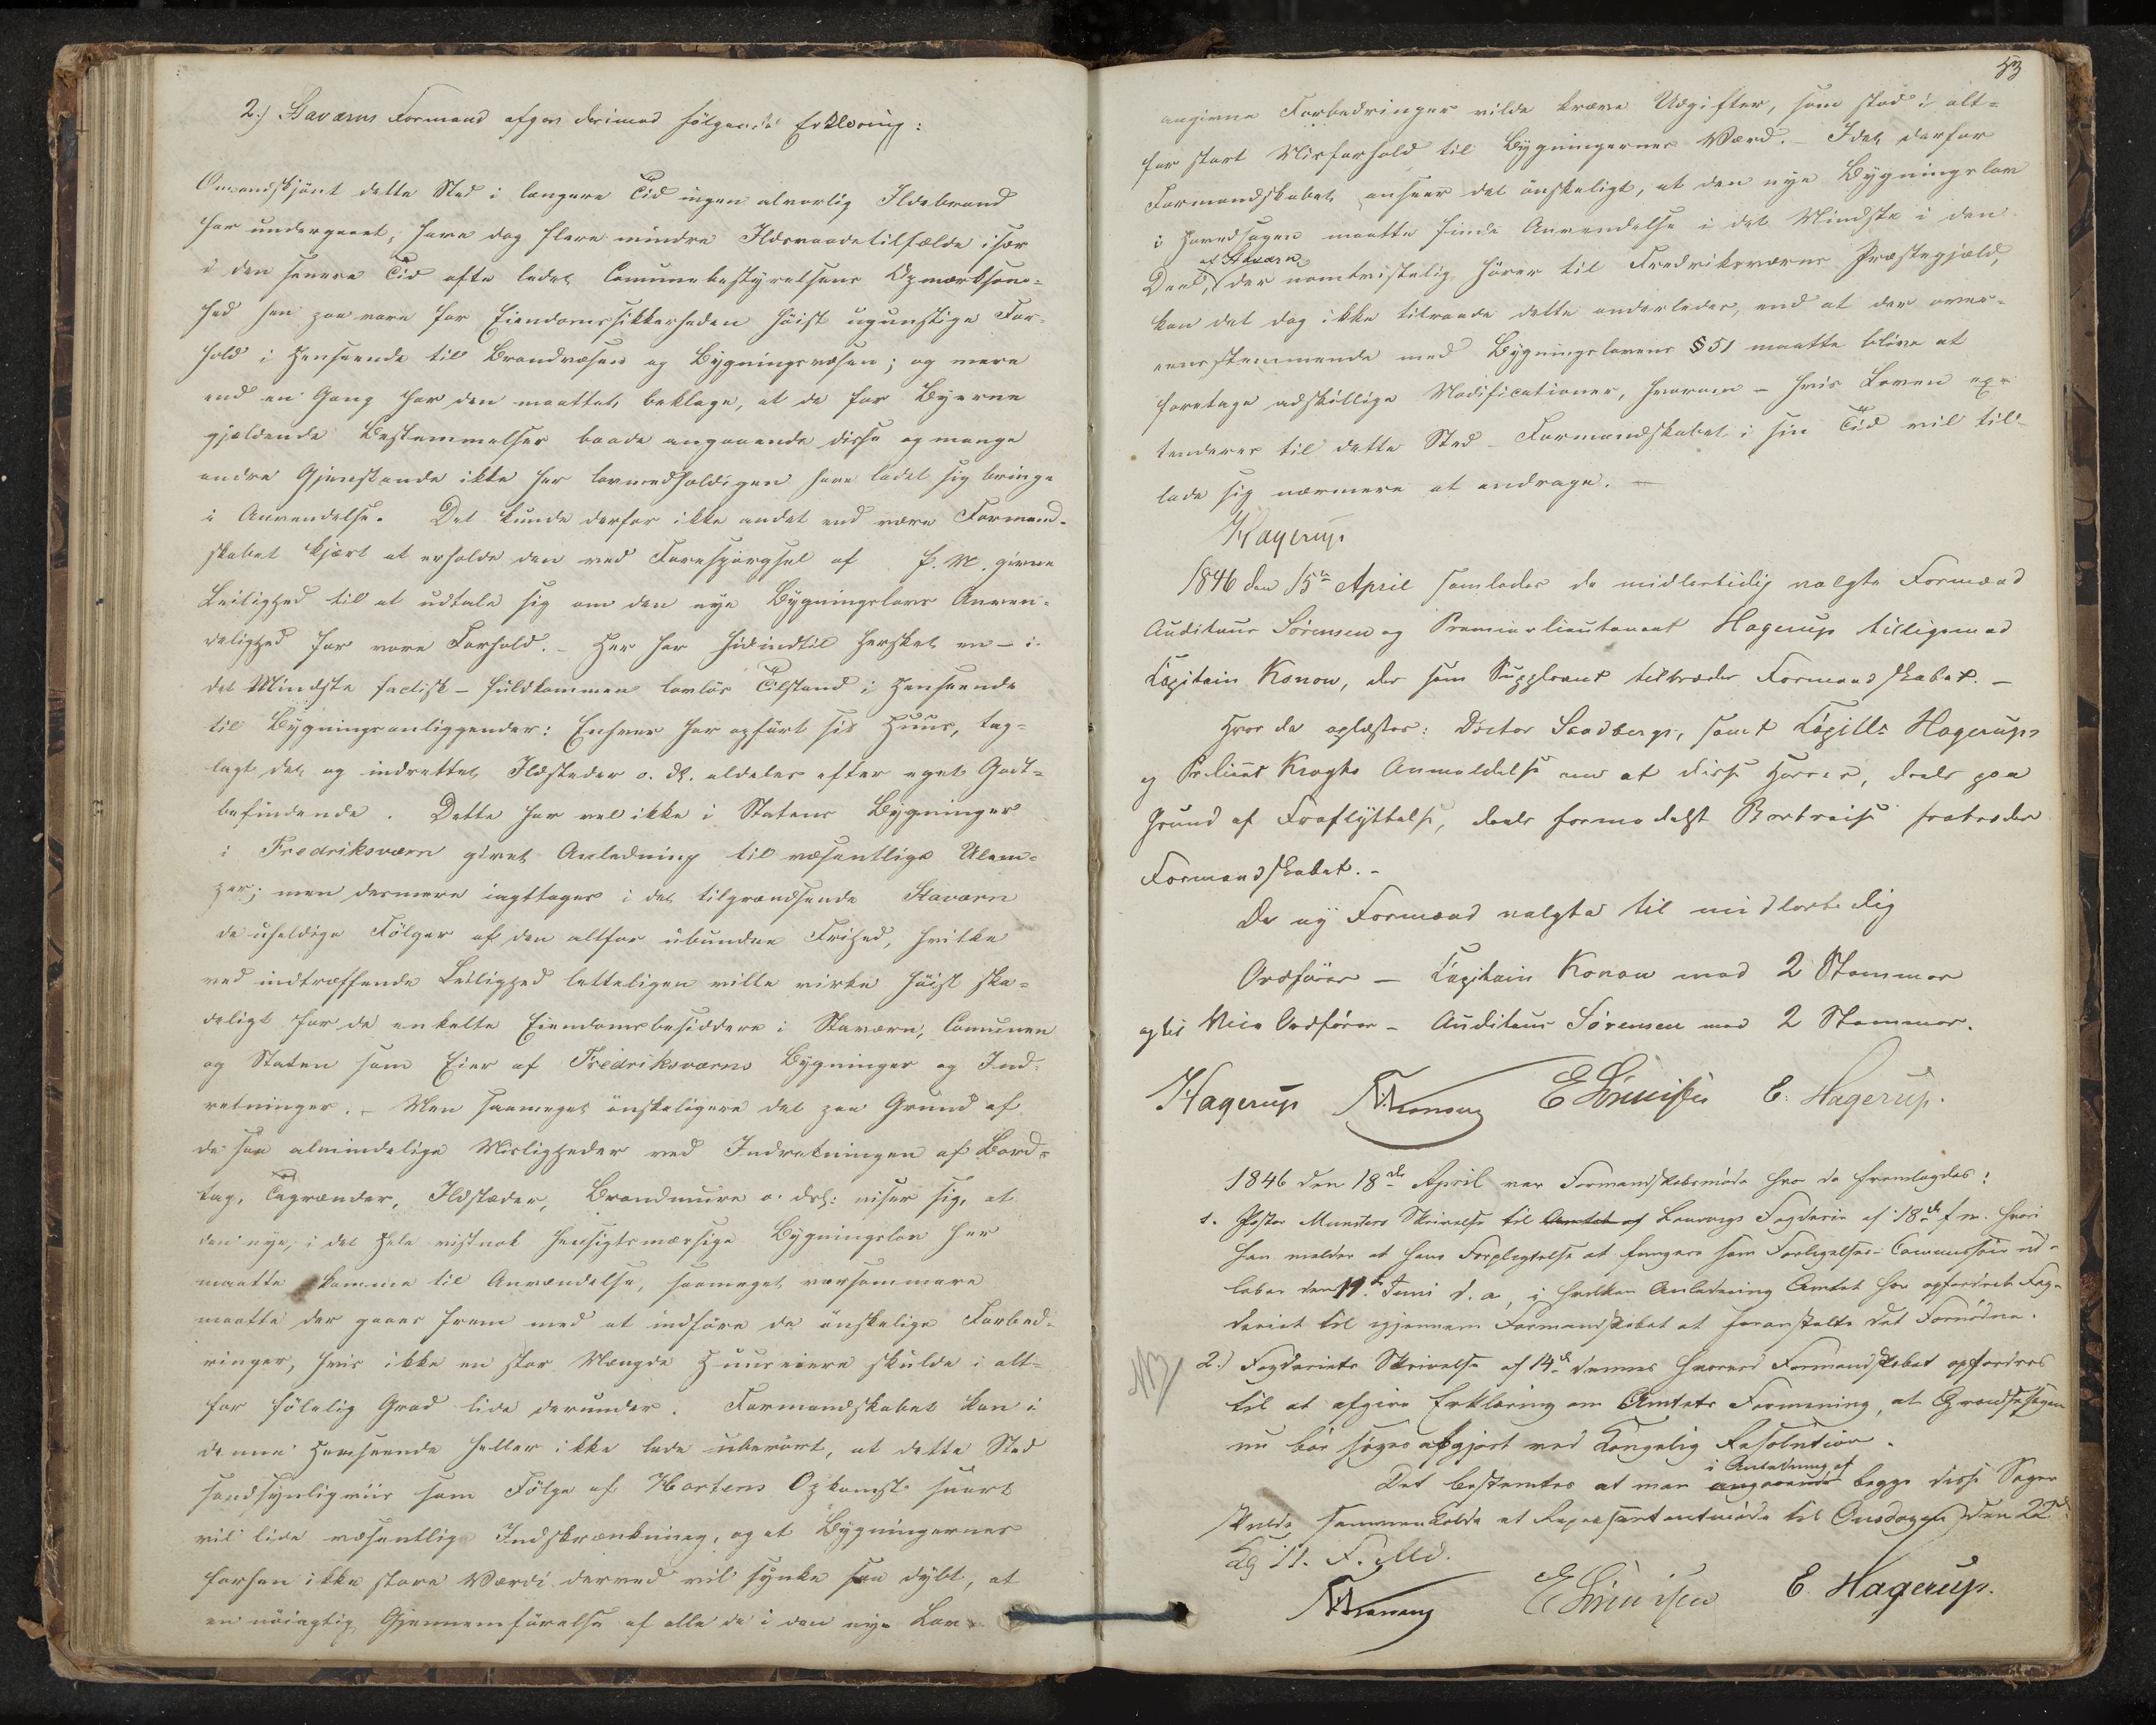 2.) Staværns Formænd afgav derimod følgende Erklæring:
Omendskjönt dette Sted i længere Tid ingen alvorlig Ildebrand
har undergaaet, have dog flere mindre Ildsvaadetilfælde især
i den senere Tid ofte ledet Comunebestyrelsens Opmærksom-
hed hen paa vore for Eiendomssikkerheden höist ugunstige For-
hold i Henseende til Brandvæsen og Bygningsvæsen; og mere
end en Gang har den maattet beklage, at de for Byerne
gjældende Bestemmelser baade angaaende disse og mange
andre Gjenstande ikke her lovmedholdigen have ladet sig bringe
i Anvendelse. Det kunde derfor ikke andet end være Formand-
skabet kjært at erholde den ved Forespörgsel af f. M. givne
Leilighed til at udtale sig om den nye Bygningslovs Anven-
delighed for vore Forhold. – Her har hidindtil hersket en – i
det Mindste factisk – fuldkommen lovlös Tilstand i Henseende
til Bygningsanliggender: Enhver har opfört sit Huus, tag-
lagt det og indrettet Ildsteder o. dl. aldeles efter eget Godt-
befindende. Dette har vel ikke i Statens Bygninger
i Fredriksværn givet Anledning til væsentlige Ulem-
per; men desmere iagttages i det tilgrændsende Staværn
de uheldige Fölger af den altfor ubundne Frihed, hvilke
ved indtræffende Leilighed letteligen ville virke höist ska-
deligt for de enkelte Eiendomsbesiddere i Staværn, Comunen
og Staten som Eier af Fredriksværns Bygninger og Ind-
retninger. – Men saameget önskeligere det paa Grund af
de saa almindelige Misligheder ved Indretningen af Bord-
tag, Tagrender, Ildstæder, Brandmure o. desl: viser sig, at
den nye, i det Hele vistnok hensigtsmæssige Bygningslov her
maatte komme til Anvendelse, saameget varsommere
maatte der gaaes frem med at indföre de önskelige Forbed-
ringer, hvis ikke en stor Mængde Huuseiere skulde i alt-
for fölelig Grad lide derunder. Formandskabet kan i
denne Henseende heller ikke lade uberört, at dette Sted
sandsynligviis som Fölge af Hortens Opkomst snart
vil lide væsentlig Indskrænkning, og at Bygningernes
forhen ikke store Værdi derved vil synke saa dybt, at
en nöiagtig Gjennemförelse af alle de i den nye Lov
53
angivne Forbedringer vilde kræve Udgifter, som stod i alt-
for stort Misforhold til Bygningernes Værd. – Idet derfor
Formandskabet anseer det önskeligt, at den nye Bygningslov
i Hovedsagen maatte finde Anvendelse i det Mindste i den
af Stavern
Deel, der uomtvistelig hörer til Fredriksværns Præstegjæld,
kan det dog ikke tilraade dette anderledes, end at der over-
eensstemmende med Bygningslovens § 51 maatte blive at
foretage adskillige Modificationer, hvorom – hvis Loven ex-
tenderes til dette Sted – Formandskabet i sin Tid vil til-
lade sig nærmere at andrage. –
Hagerup
1846 den 15de April samledes de midlertidig valgte Formænd
Auditeur Sörensen og Premierlieutenant Hagerup tilligemed
Kapitain Konow, der som Suppleant tiltræder Formandskabet. –
Hvor da oplæstes: Doctor Sandbergs, samt Hagerups
og Kroghs Anmeldelse om at disse Herrer, deels paa
Grund af Fraflyttelse, deels formedelst Bortreise fratræder
Formandskabet. –
De ny Formænd valgte til midlertidig
Ordförer – Kapitain Konow med 2 Stemmer
og til Vice Ordförer – Auditeur Sörensen med 2 Stemmer.
Hagerup Konow E Sörensen E. Hagerup.
1846 den 18de April var Formandskabsmöde hvor da fremlagdes:
1. Pastor Munsters Skrivelse til Amtet af Laurvigs Fogderie af 18de f. m. hvori
han melder at hans Forpligtelse at fungere som Forligelses-Commissair ud-
löber den 11te Juni d. a, i hvilken Anledning Amtet har opfordret Fog-
deriet til igjennem Formandskabet at foranstalte det Fornödne.
NB
2.) Fogderiets Skrivelse af 14de dennes hvorved Formandskabet opfordres
til at afgive Erklæring om Amtets Formening, at Grændsesagen
nu bör söges afgjort ved Kongelig Resolution.
i Anledning af
Det bestemtes at man angaaende begge disse Sager
skulde sammenkalde et Repræsentantmöde til Onsdagen den 22de
Kl 11. F. Md.
Konow E Sörensen E. Hagerup.